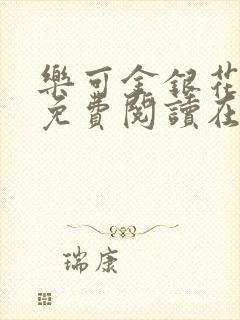 樂可金銀花
免費閱讀在
瑞康